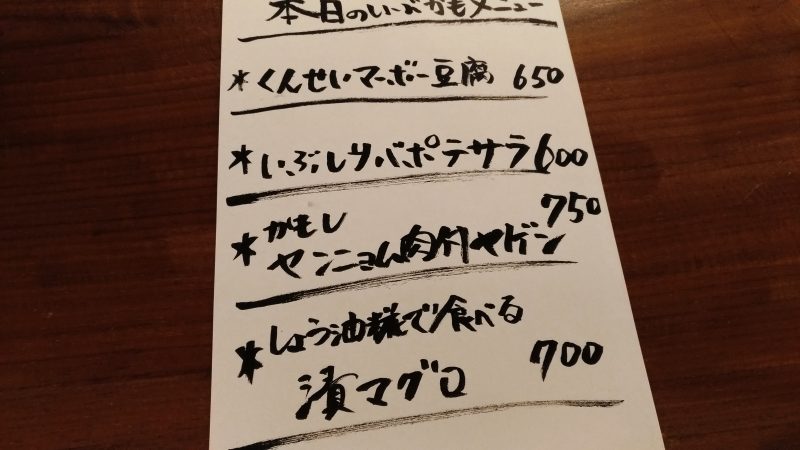 本日のいぶかもメニュー
*くんせいマーボー豆腐 650
*いぶしリバポテサラ600
750
*かもし
ヤンニョム肉付ヤゲン
*しょう油糀で食べる
漬マグロ 700